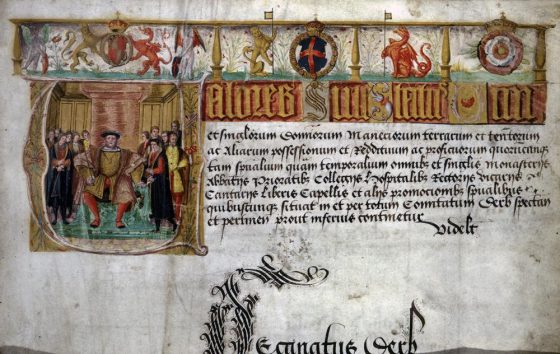 Valores Siue Status Om
et singlorum Dominiorum Maneriorum terrarum et tentorum
ac Aliarum possessionum et Reddituum ac proficuorum
tam spualium quam temporalium omnibz et singlis monasterijs
Abbathijs Prioratibz Collegijs Hospitalibz Rectorijs Vicarijs
Cantarijs Liberis Capellis et alijs promocionibus spualibus
quibuscunqz situat in et per totum Comitatum Derb spectan
et pertinen prout inferius continetur
Videlt
Decanatus Derb